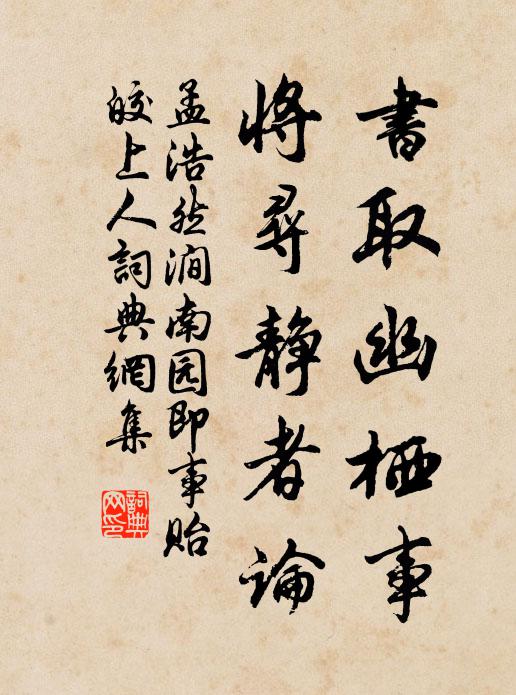 書取幽栖事
將尋靜者論
孟浩然澗南园即事貽
皎上人詞典網集
詞典
网印